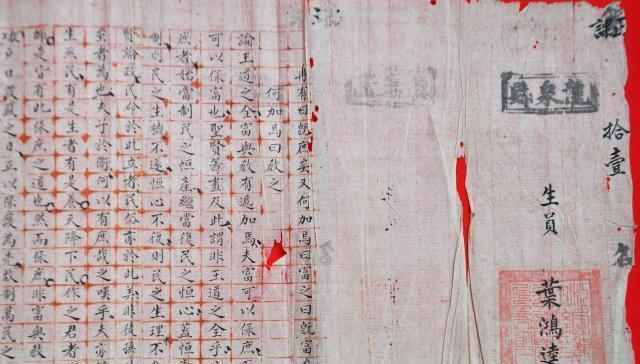 拾壹名
龍泉縣
生員 葉鴻逵
冉有曰既庶矣又何加焉曰富之曰既富
何加焉曰教之
論王道之全富與教有遞加焉夫富可以保庶
可以保富也聖賢籌畫及此謂非王道之全乎
庶者始當制民之恒產繼當復民之恒心蓋恒
制則民之生機不遂恒心不復則民之生理不
民命於此立者民俗亦於此美非後
來者為也夫子於衛何以有庶哉之嘆乎夫亦
生無民有是生者有是養天降下民作之君者
師是富有此保庶之道也然而保庶非富與教
戶口之日正以保護為先故制萬民之